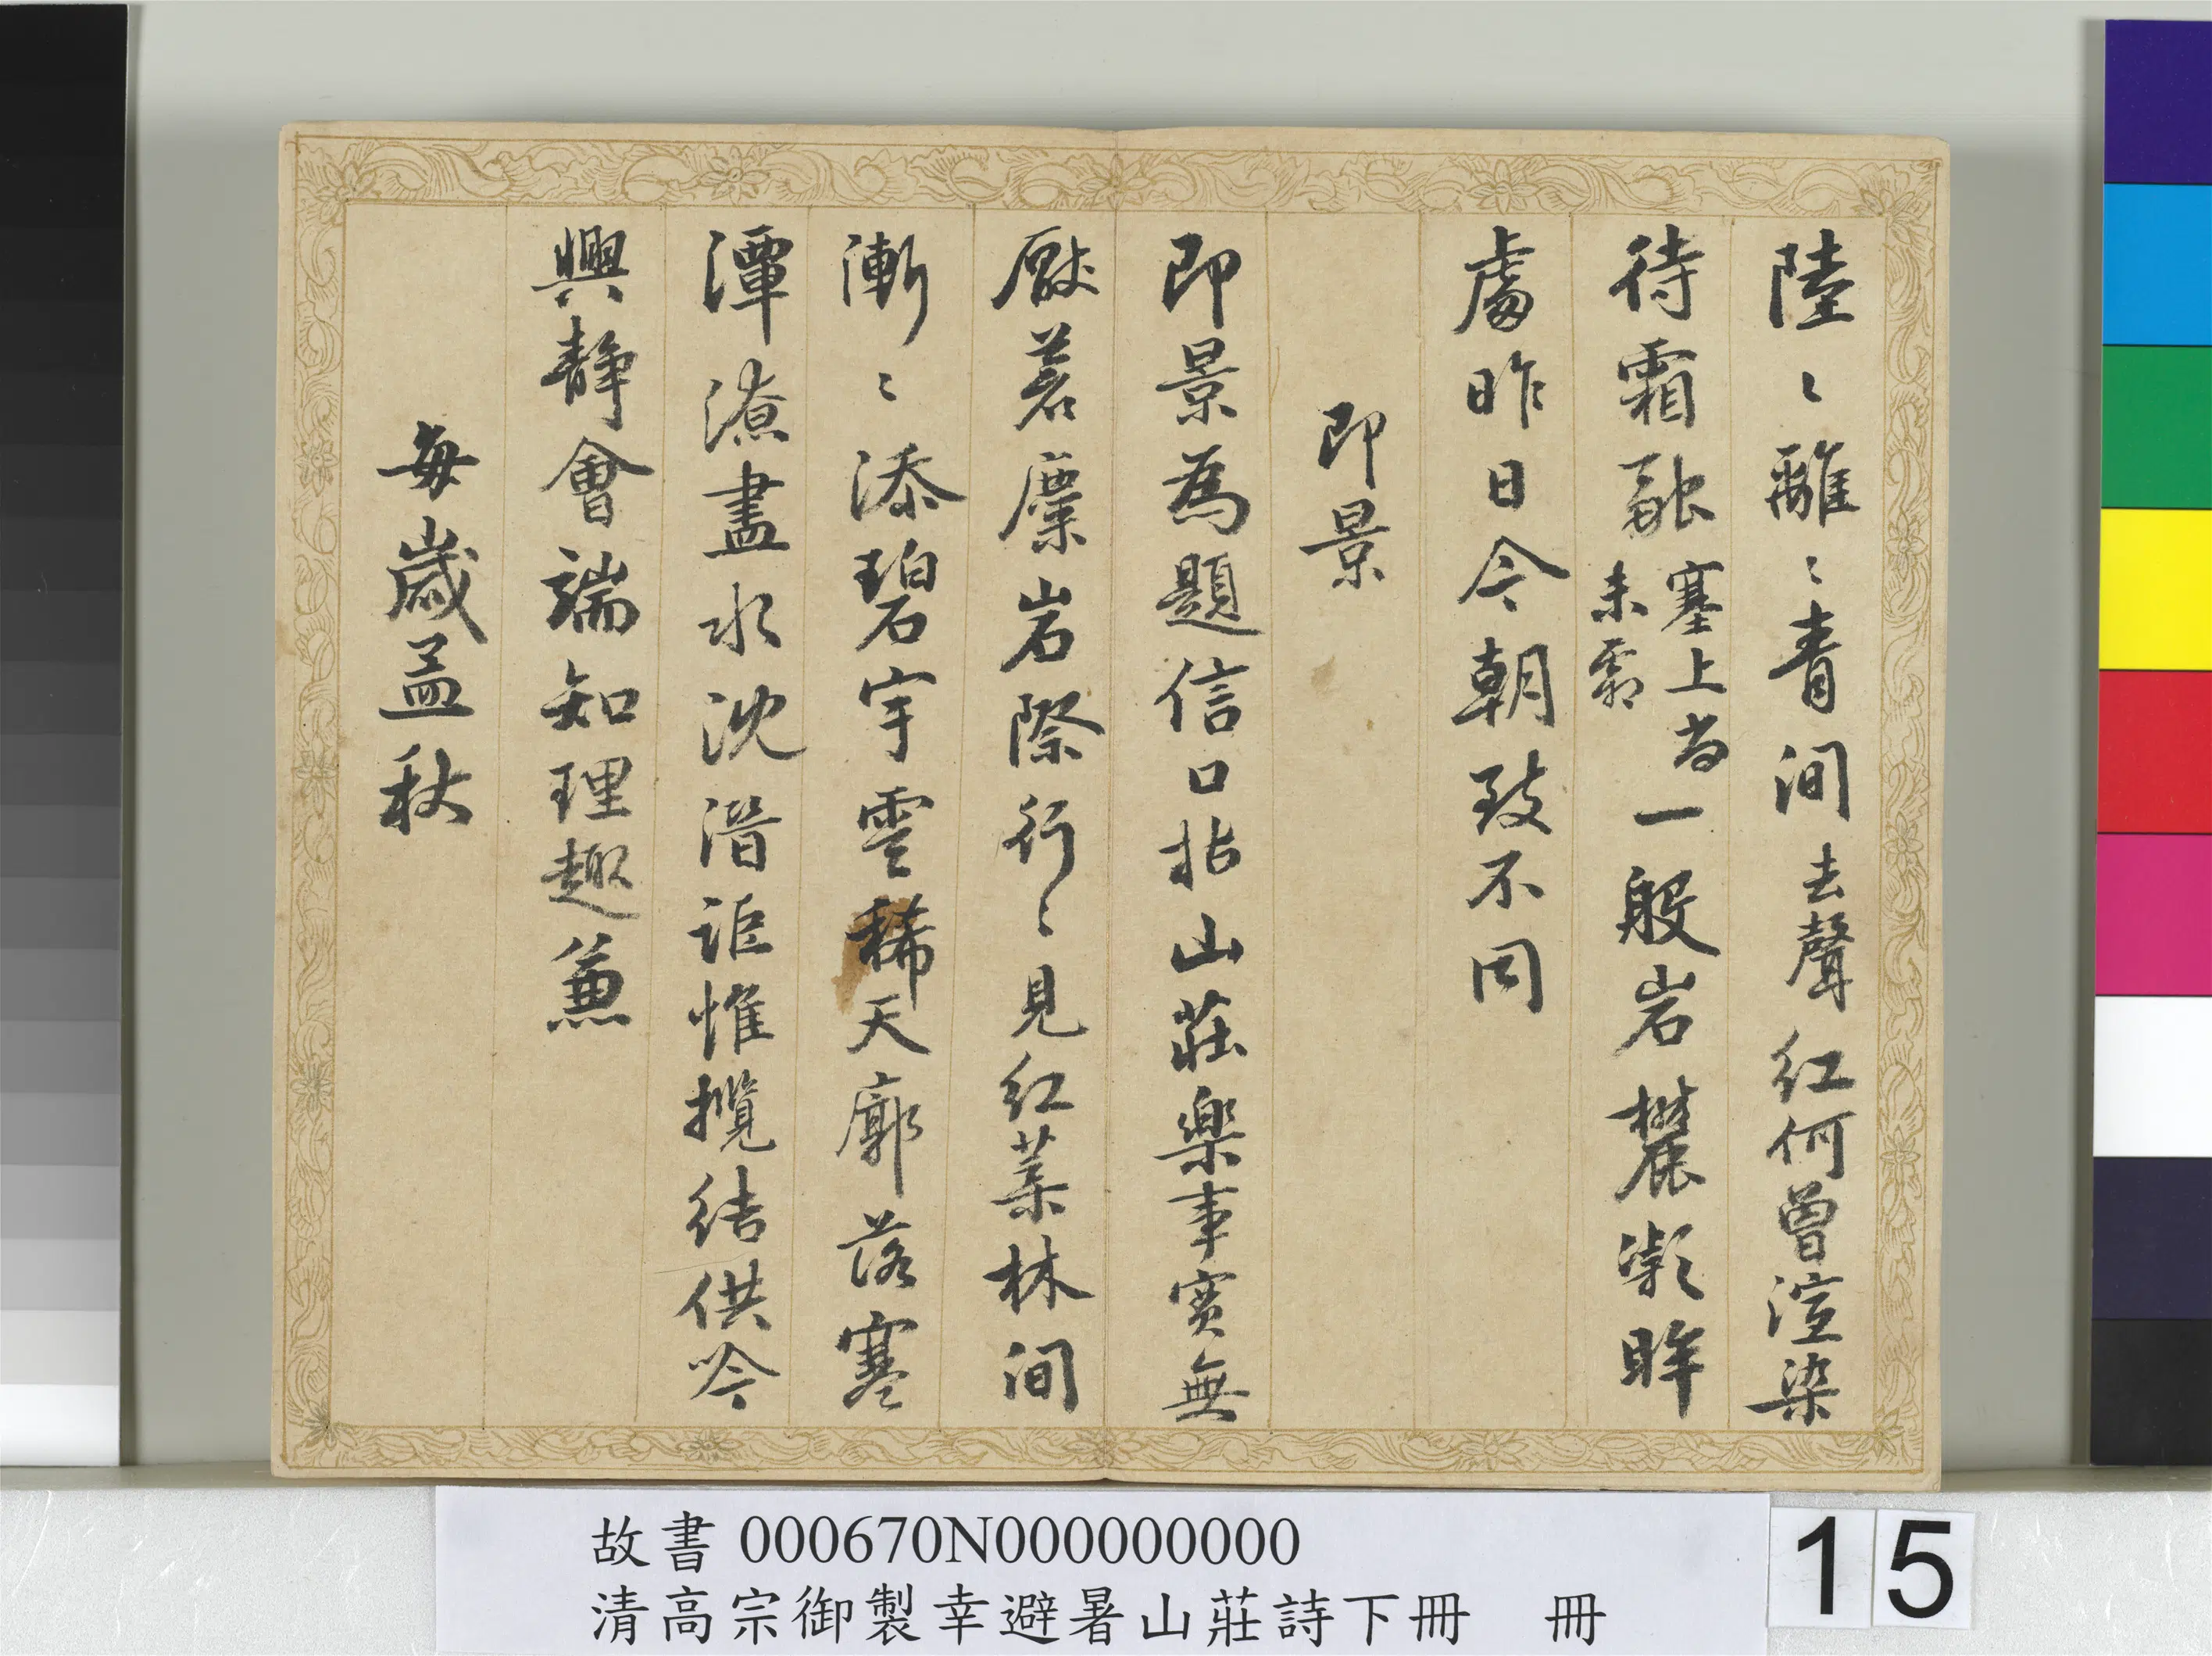 陸〻離〻青間去聲紅何曾渲染
待霜融塞上尚未霜一般岩麓凝眸
處昨日今朝致不同
即景
即景為題信口拈山莊樂事實無
厭茗廩岩際行〻見紅葉林間
漸〻添碧宇雲稀天廓落寒
潭潦盡水沈潛詎惟攬結供吟
興静會端知理趣兼
每歲孟秋
故書 000670N000000000
清高宗御製幸避暑山莊詩下冊 冊
15